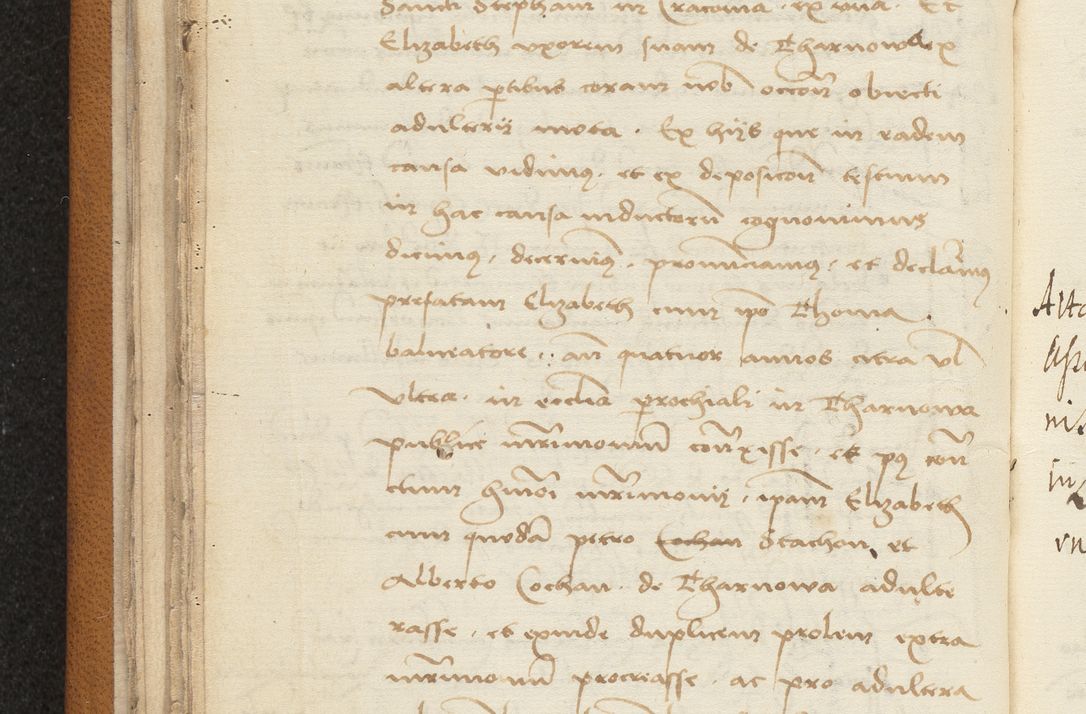 Sancti Stephani in Cracovia . ex una . Et
Elizabeth uxorem suam de Tharnowa ex
altera ptibus coram nob occōne obiecti
adulterij mota . Ex hijs que in eadem
causa vidimus . et ex deposicōn testium
in hac causa inductorū cognovimus
dicimus , decernimus , pronunciamus , et declaramus
prefatam Elizabeth cum ipo Thoma .
balneatore , an quatuor annos citra vl
ultra . in ecclia parochiali in Tharnowa
publice mrimoniū conrxisse , et pq con
ctum hmōi mrimonij , ipam Elizabeth
cum quodā petro Cochan Stachon, et
Alberto Cochan . de Tharnowa adulte
rasse , et exinde duplicem prolem extra
mrimoniū procreasse , ac pro adultera